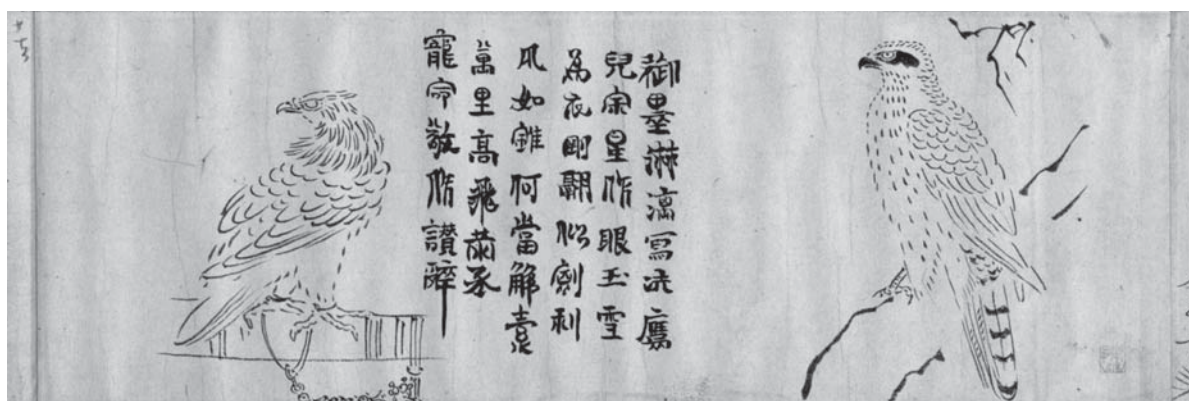 御墨淋漓寫此鷹
兒星作眼玉雪
為衣剛翮似劍利
爪如錐何當解索
萬里高飛恭承
寵命敬作讚辭